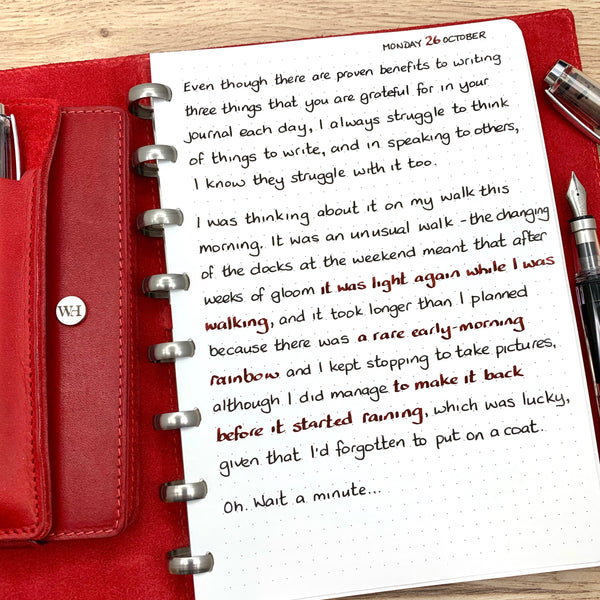 MONDAY 26 OCTOBER
Even though there are proven benefits to writing
three things that you are grateful for in your
journal each day, I always struggle to think
of things to write, and in speaking to others,
I know they struggle with it too.
I was thinking about it on my walk this
morning. It was an unusual walk - the changing
of the docks at the weekend meant that after
weeks of gloom it was light again while I was
walking, and it took longer than I planned
because there was a rare early-morning
rainbow and I kept stopping to take pictures,
although I did manage to make it back
before it started raining, which was lucky,
given that I'd forgotten to put on a coat.
Oh. Wait a minute...
WH